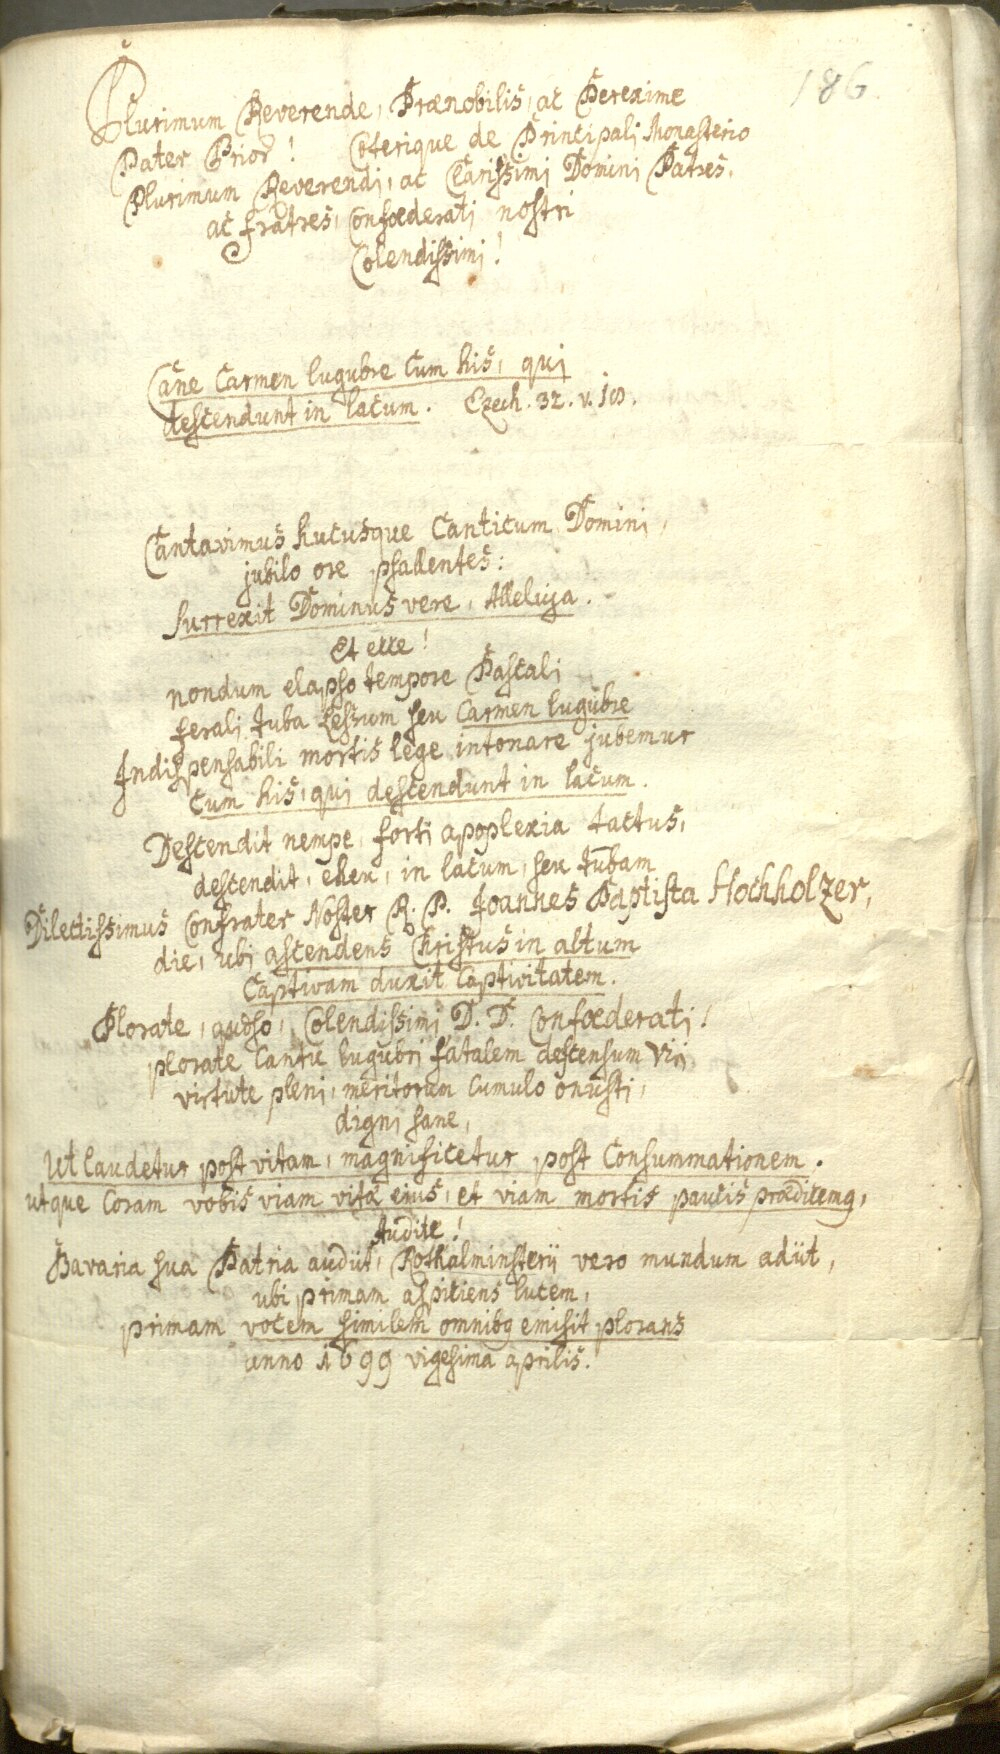 186
Plurimum Reverende, Prænobilis, ac Perexime
Pater Prior! Cæterique de Principali Monasterio
Plurimum Reverendi, ac Clarissimi Domini Patres,
ac fratres, Confœderati nostri
Colendissimi!
Cane Carmen lugubre cum his, qui
descendunt in lacum. Ezech. 32. v. 18.
Cantavimus hucusque Canticum Domini,
jubilo ore psallentes:
Surrexit Dominus vere, Alleluja.
Et ecce!
nondum elapso tempore Pascali
ferali tuba Lessum seu Carmen lugubre
Indispensabili mortis lege intonare jubemur
Cum his, qui descendunt in lacum.
Descendit nempe, forti apoplexia tactus,
descendit, eheu, in lacum, seu tubam
Dilectissimus Confrater Noster R. P. Joannes Baptista Hochholzer,
die, ubi ascendens Christus in altum
Captivam duxit Captivitatem.
Plorate, quæso, Colendissimi D. D. Confœderati!
plorate Cantu lugubri fatalem descensum Viri
virtute pleni, meritorum Cumulo onusti,
digni sane,
Ut laudetur post vitam, magnificetur post Consummationem.
utque Coram vobis viam vitæ ejus, et viam mortis paucis præditemq,
Audite!
Bavaria sua Patria audiit, Rothalminsterii vero mundum adiit,
ubi primam aspiciens lucem,
primam vocem similem omnibq emisit plorans
anno 1699 vigesima aprilis.